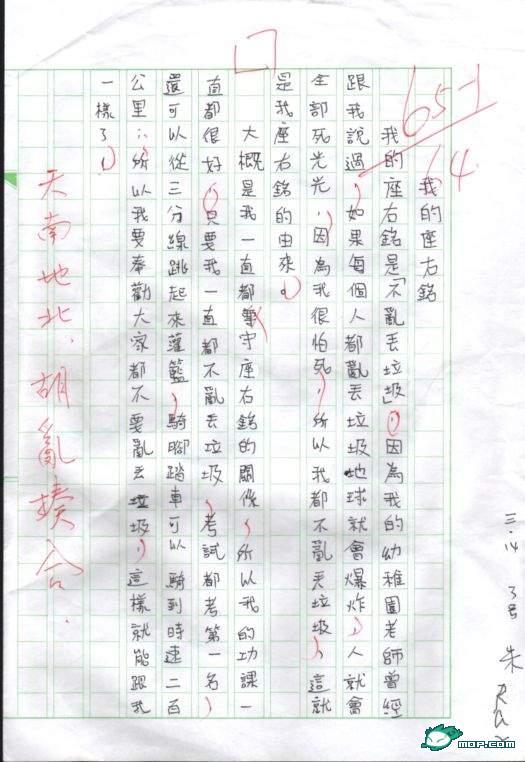 我的座右銘
我的座右銘是「不亂丟垃圾」，因為我的幼稚園老師曾經
跟我說過，如果每個人都亂丟垃圾地球就會爆炸，人就會
全部死光光，因為我很怕死，所以我都不亂丟垃圾，這就
是我座右銘的由來。
大概是我一直都遵守座右銘的關係，所以我的功課一
直都很好，只要我一直都不亂丟垃圾，考試都考第一名，
還可以從三分線跳起來灌籃，騎腳踏車可以騎到時速二百
公里…，所以我要奉勸大家都不要亂丟垃圾，這樣就能跟我
一樣了！
天南地北，胡亂揍合。
65-1
64.
三.14
3号
朱
mop.com